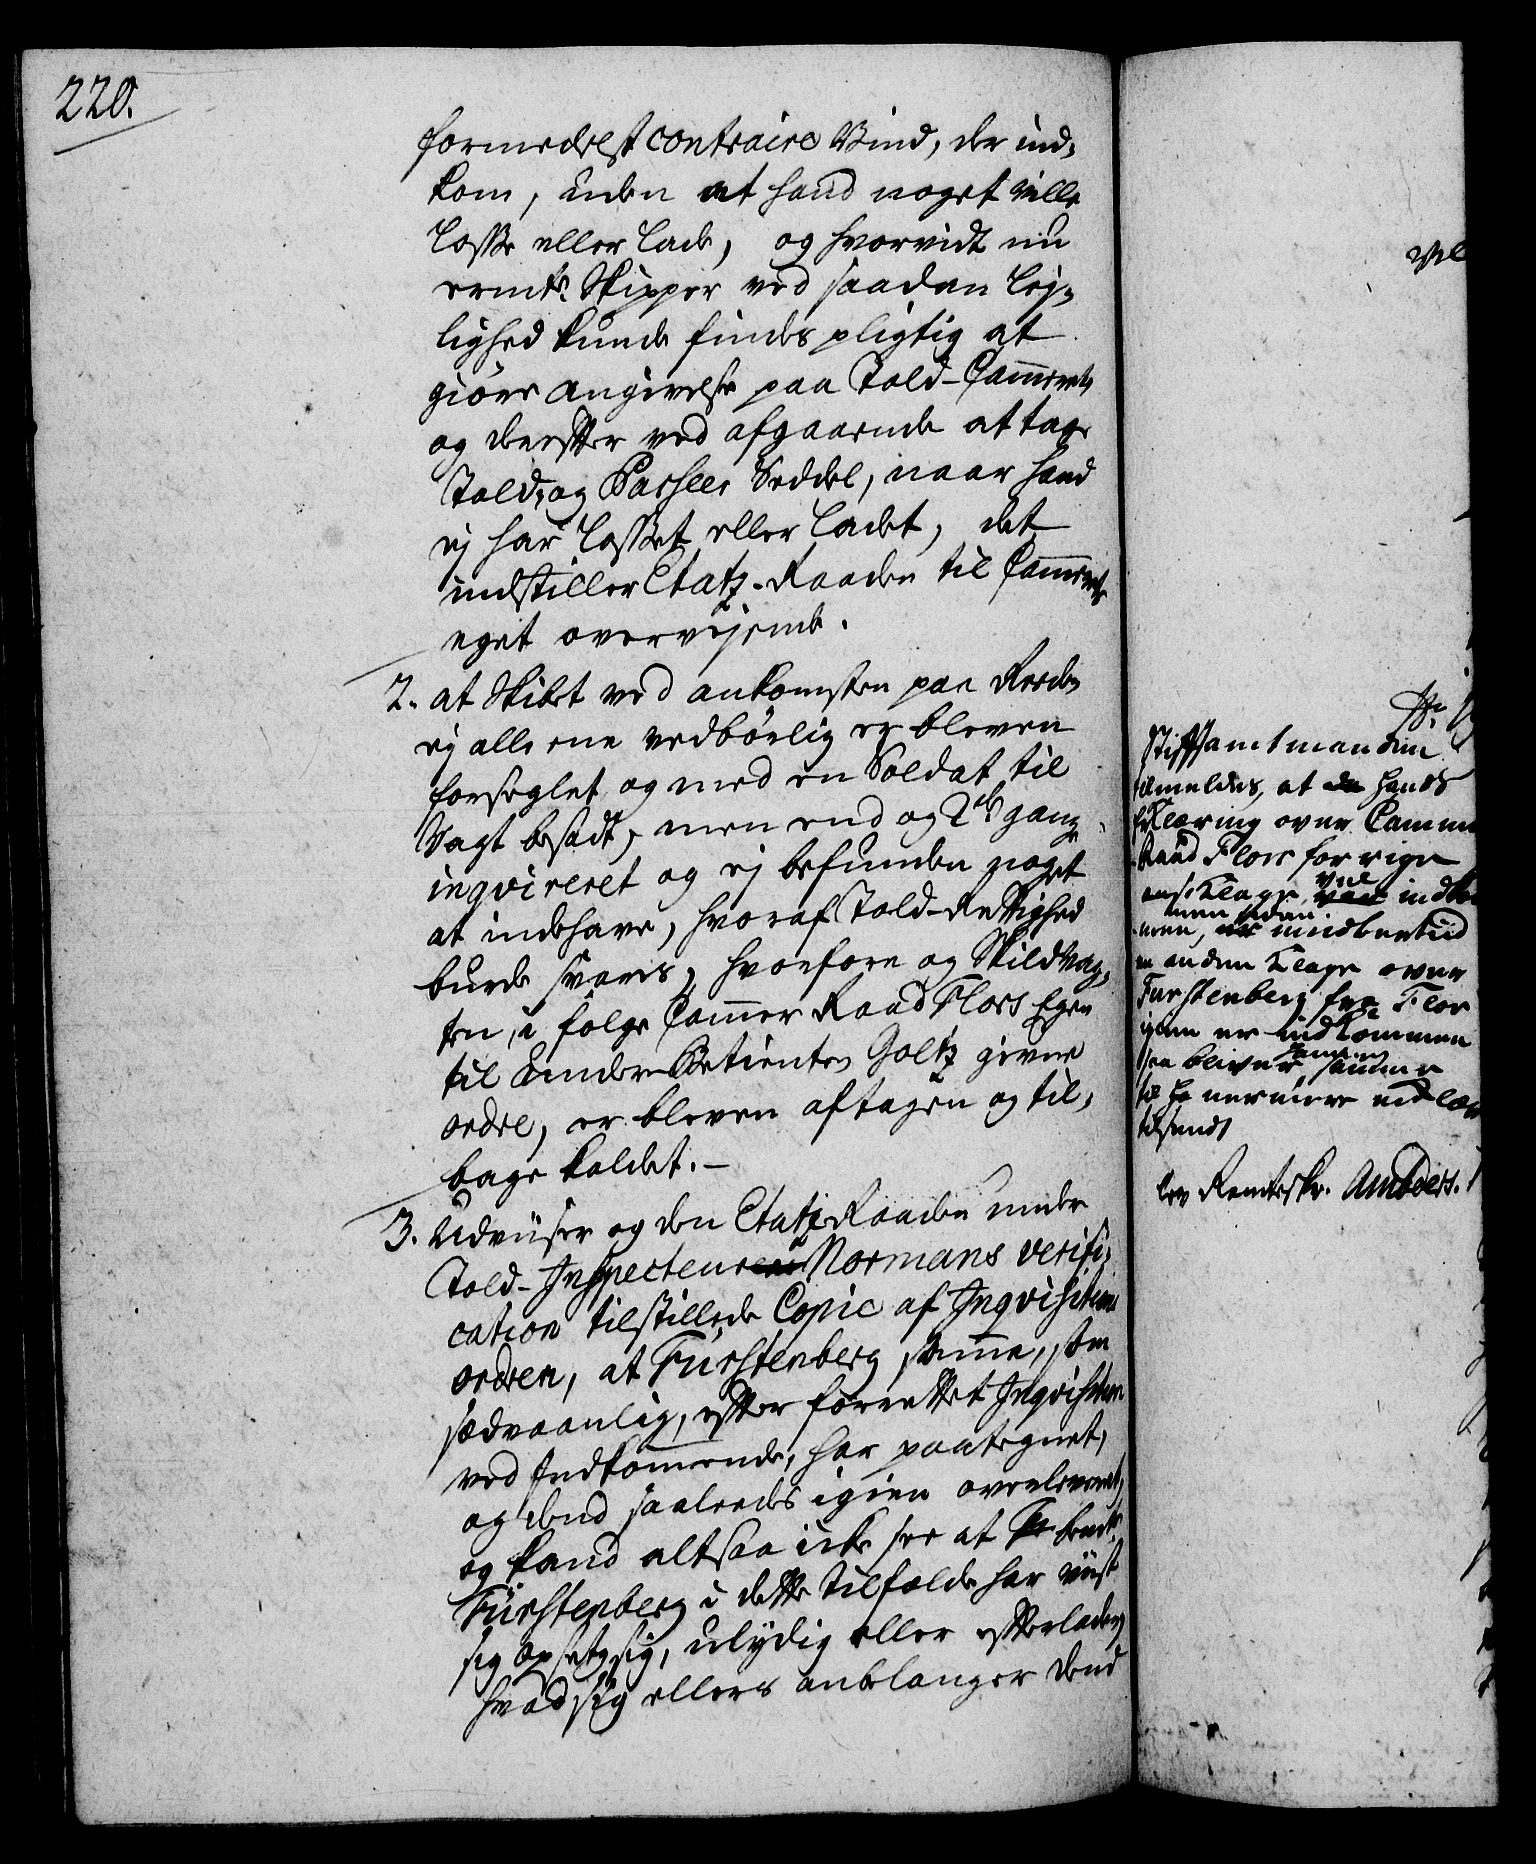 220.
formedelst contraire Vind, der ind-
kom, uden at hand noget ville
losse eller lade, og hvorvidt nu
ermte Skipper ved saadan lej-
lighed kunde findes pligtig at
giöre angivelse paa Told-Cammeret
og derefter ved afgaaende at tage
Told- og Passeer Seddel, naar hand
ej har losset eller ladet, det
indstiller Etatz-Raaden til Cammerets
eget overvejende.
2. at Skibet ved ankomsten paa Reeden
ej alleene vedbörlig er bleven
forseglet og med en Soldat til
Vagt besadt, men end og 2de gange
inqvireret og ej befunden noget
at indehave, hvoraf Told-Rettighed
burde svares, hvorfore og Skildvag-
ten, i fölge Cammer Raad Flors Egen
til Under Betienten Goltz givne
ordre, er bleven aftagen og til-
bage kaldet.-
3. Udviiser og den Etatz Raaden under
Told-Inspecteur Normans verifi-
cation tilstillede Copie af Inqvisitions
ordren, at Fürstenberg samme, som
sædvaanlig, efter forrettet Inqvisition
ved Indkommende, har paategnet,
og dend saaleedes igien overleveret,
og kand altsaa icke see at bemte
Fürstenberg i dette tilfælde har viist
sig opsetzsig, ulydig eller efterladen,
hvad sig ellers anbelanger dend
Stiftsamtmanden
tilmeldes, at hands
Erklæring over Camme
Raad Flors forrige
Klage, vel indkom
men, men siden imidlertiid
en anden Klage over
Furstenberg fra Flor
igien er indkommen
saa bliver samme
til nermere
tilsendt
Renteskr. Amders.